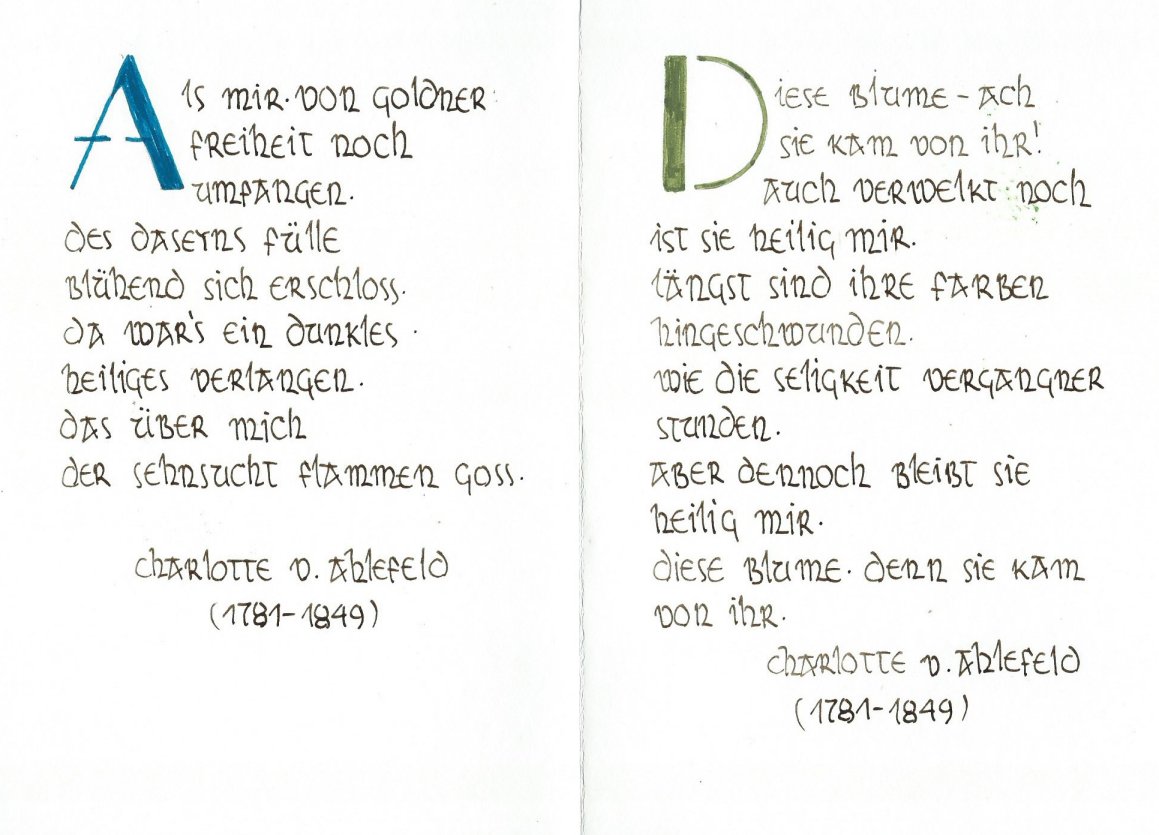 Als mir. von goldner
freiheit noch
umfangen.
des daseyns fülle
blühend sich erschloss.
da war's ein dunkles
heiliges verlangen.
das über mich
der sehnsucht flammen goss.
charlotte v. Ahlefeld
(1781-1849)
Diese Blume - ach
sie kam von ihr!
Auch verwelkt noch
ist sie heilig mir.
längst sind ihre farben
hingeschwunden.
wie die seligkeit vergangner
stunden.
Aber dennoch bleibt sie
heilig mir.
diese Blume. denn sie kam
von ihr.
charlotte v. Ahlefeld
(1781-1849)